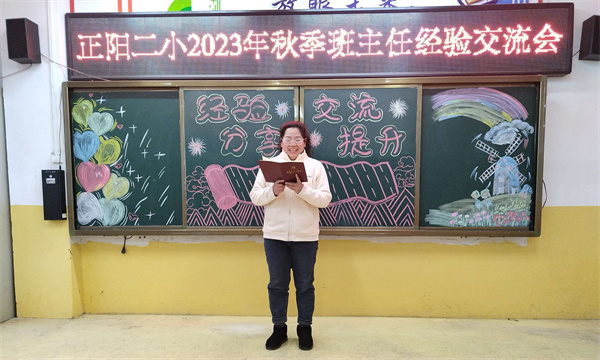 正阳二小2023年秋季班主任经验交流会
经验 交流
分享 提升